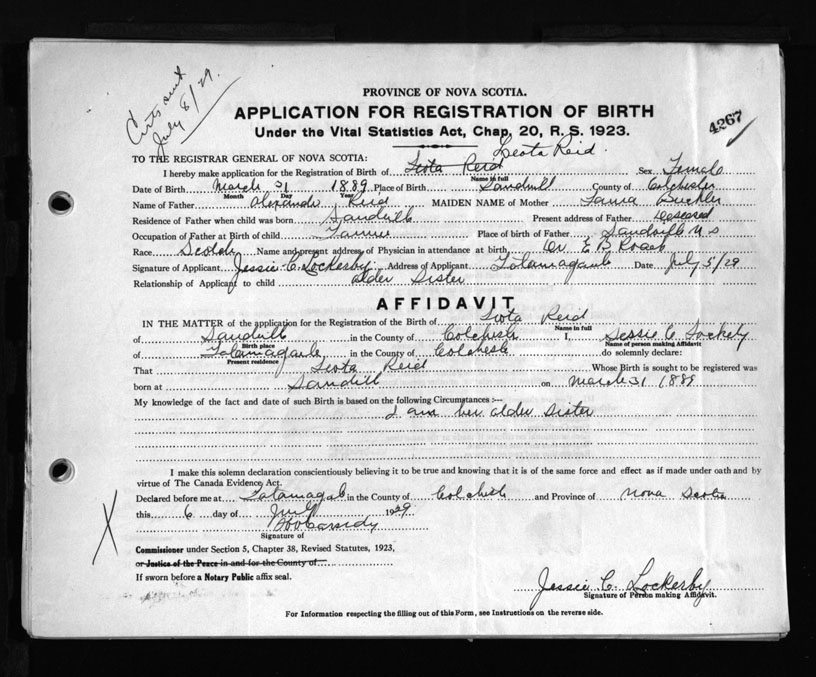 Certs sent
July 8/29.
PROVINCE OF NOVA SCOTIA.
APPLICATION FOR REGISTRATION OF BIRTH
4267
Under the Vital Statistics Act, Chap. 20, R. S. 1923.
Leota Reid.
TO THE REGISTRAR GENERAL OF NOVA SCOTIA:
I hereby make application for the Registration of Birth of Reid Sex Female
Name in full
Date of Birth March 31 1889 Place of Birth Sandvill County of Colchester
Month Day Year
Name of Father Reid MAIDEN NAME of Mother
Residence of Father when child was born Sandvill Present address of Father Deceased
Occupation of Father at Birth of child Place of birth of Father N S
Race Scotch Name and present address of Physician in attendance at birth Dr. E B Roach
Signature of Applicant Jessie C. Lockerby Address of Applicant Date July 5/29
Relationship of Applicant to child alder Sister
AFFIDAVIT
IN THE MATTER of the application for the Registration of the Birth of Reid
Name in full
of Sandvill in the County of I, Jessie C
Birth place Name of person making Affidavit
of in the County of do solemnly declare:
Present residence
That Reid Whose Birth is sought to be registered was
born at on March 31 1889
My knowledge of the fact and date of such Birth is based on the following Circumstances :—
I am her alder sister
I make this solemn declaration conscientiously believing it to be true and knowing that it is of the same force and effect as if made under oath and by
virtue of The Canada Evidence Act.
Declared before me at in the County of and Province of Nova Scotia
this 6 day of July 1929
Cassidy
Signature of
Commissioner under Section 5, Chapter 38, Revised Statutes, 1923,
or Justice of the Peace in and for the County of
If sworn before a Notary Public affix seal.
Jessie C. Lockerby
Signature of Person making Affidavit.
For Information respecting the filling out of this Form, see Instructions on the reverse side.